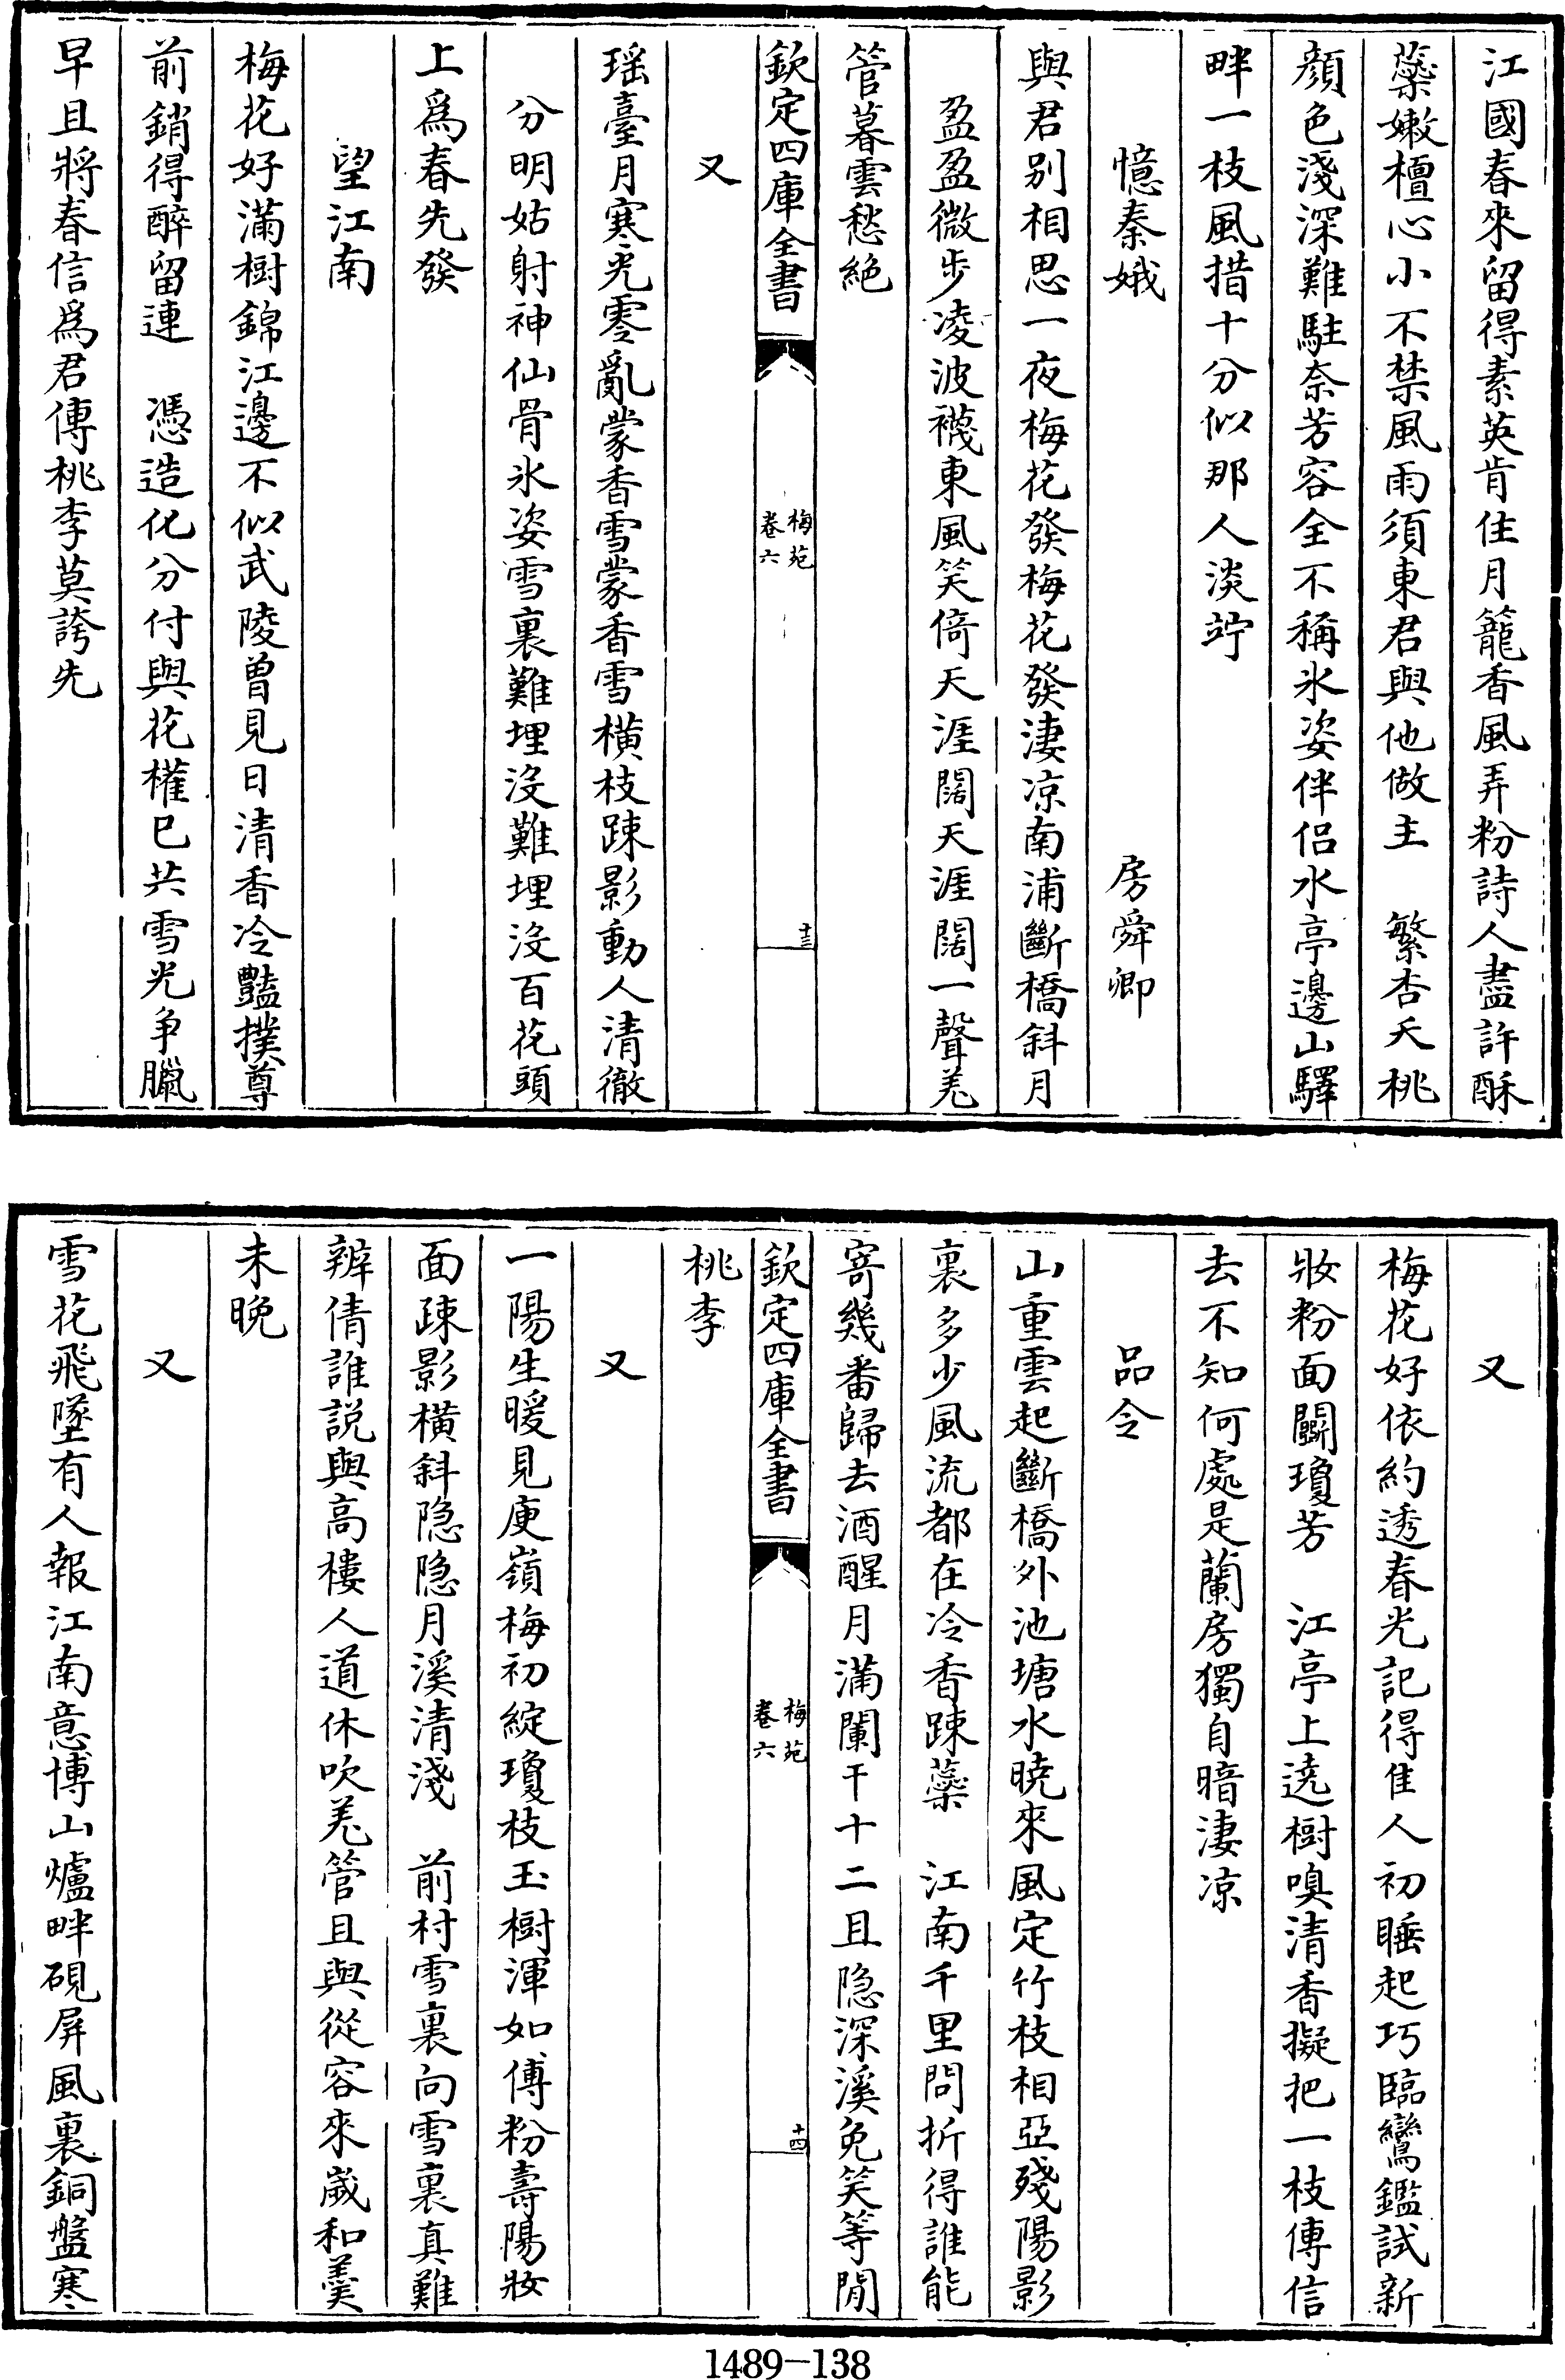 江國春來留得素英肯住月籠香風弄粉詩人盡許酥
蘂嫩檀心小不禁風雨須東君與他做主　繁杏夭桃
顔色淺深難駐奈芳容全不稱氷姿伴侣水亭邊山驛
畔一枝風措十分似那人淡竚
憶秦娥　房舜卿
與君别相思一夜梅花發梅花發淒凉南浦斷橋斜月
盈盈微步凌波襪東風笑倚天涯闊天涯闊一聲羌
管暮雲愁絶
欽定四庫全書　梅苑　卷六　十三
又
瑶臺月寒光零亂蒙香雪蒙香雪橫枝踈影動人清徹
分明姑射神仙骨氷姿雪裏難埋没難埋没百花頭
上爲春先發
望江南
梅花好滿樹錦江邊不似武陵曾見日清香冷豔撲尊
前銷得醉留連　憑造化分付與花權已共雪光争臘
早且將春信爲君傳桃李莫誇先
又
梅花好依約透春光記得佳人初睡起巧臨鸞鑑試新
妝粉面鬭瓊芳　江亭上遶樹嗅清香擬把一枝傳信
去不知何處是蘭房獨自暗淒凉
品令
山重雲起斷橋外池塘水曉來風定竹枝相亞殘陽影
裏多少風流都在冷香踈蘂　江南千里問折得誰能
寄幾番歸去酒醒月滿闌干十二且隐深溪免笑等閒
欽定四庫全書　梅苑　卷六　十四
桃李
又
一陽生暖見庾嶺梅初綻瓊枝玉樹渾如傅粉壽陽妝
面踈影橫斜隐隐月溪清淺　前村雪裏向雪裏真難
辨倩誰說與高樓人道休吹羌管且與從容來嵗和羹
未晚
又
雪花飛墜有人報江南意博山爐畔硯屏風裏銅盤寒
1489-138